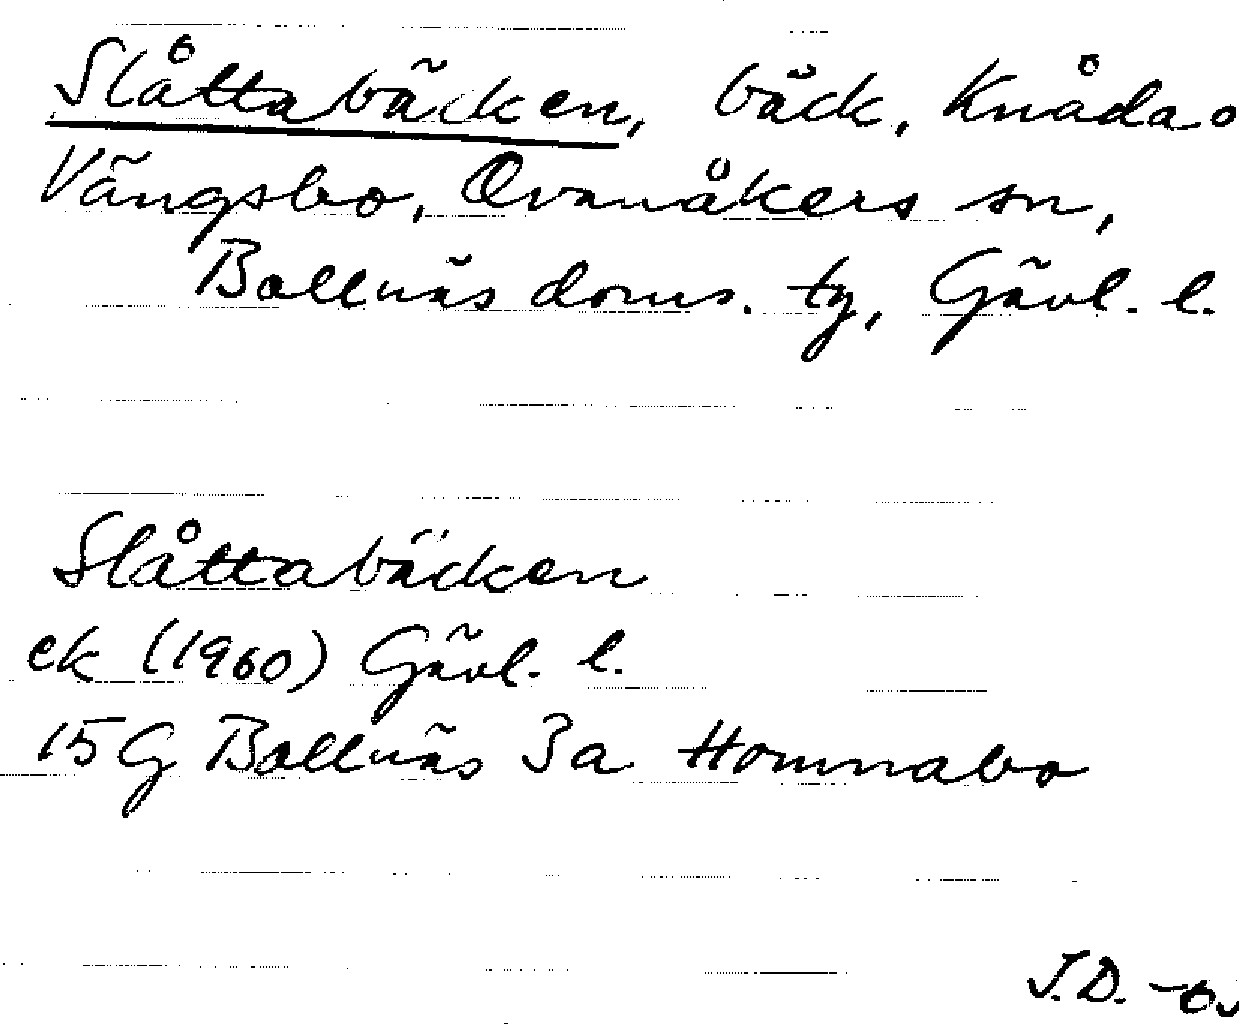 Slåttabäcken, bäck, Knåda o
Vängsbo, Ovanåkers sn,
Bollnäs doms. tg, Gävl. l.
Slåttabäcken
ek (1960) Gävl. l.
15G Bollnäs 3a Homnabo
J.D.